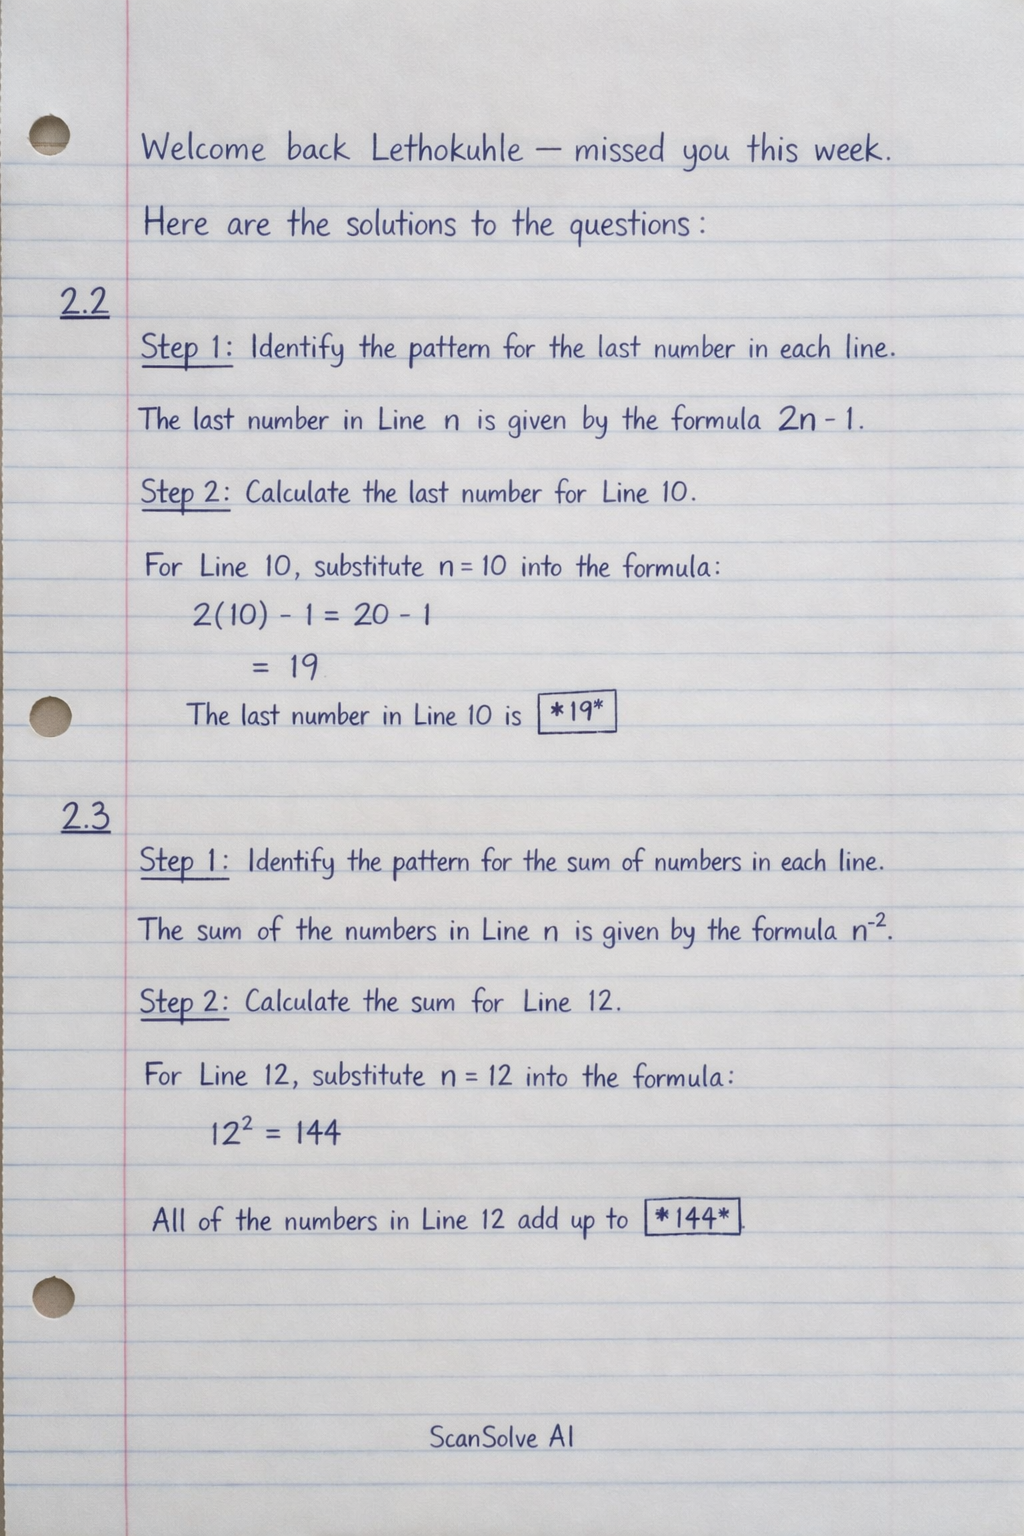 Welcome back Lethokuhle — missed you this week.
Here are the solutions to the questions:
2.2
Step 1: Identify the pattern for the last number in each line.
The last number in Line n is given by the formula 2n - 1.
Step 2: Calculate the last number for Line 10.
For Line 10, substitute n = 10 into the formula:
2(10) - 1 = 20 - 1
= 19
The last number in Line 10 is *19*
2.3
Step 1: Identify the pattern for the sum of numbers in each line.
The sum of the numbers in Line n is given by the formula n⁻².
Step 2: Calculate the sum for Line 12.
For Line 12, substitute n = 12 into the formula:
12² = 144
All of the numbers in Line 12 add up to *144*.
ScanSolve AI